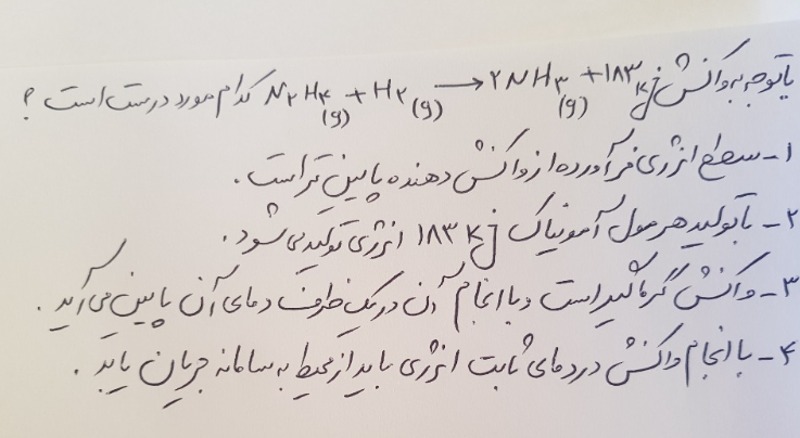 با توجه به واکنش N۲H۴(g) + H۲(g) → ۲NH۳(g) + ۱۸۳ kj کدام مورد درست است ؟
۱- سطح انرژی فرآورده از واکنش دهنده پایین تر است .
۲- با تولید هر مول آمونیاک ۱۸۳ kj انرژی تولید می شود .
۳- واکنش گرماگیر است و با انجام آن در یک ظرف دمای آن پایین می آید .
۴- با انجام واکنش در دمای ثابت انرژی باید از محیط به سامانه جریان یابد .